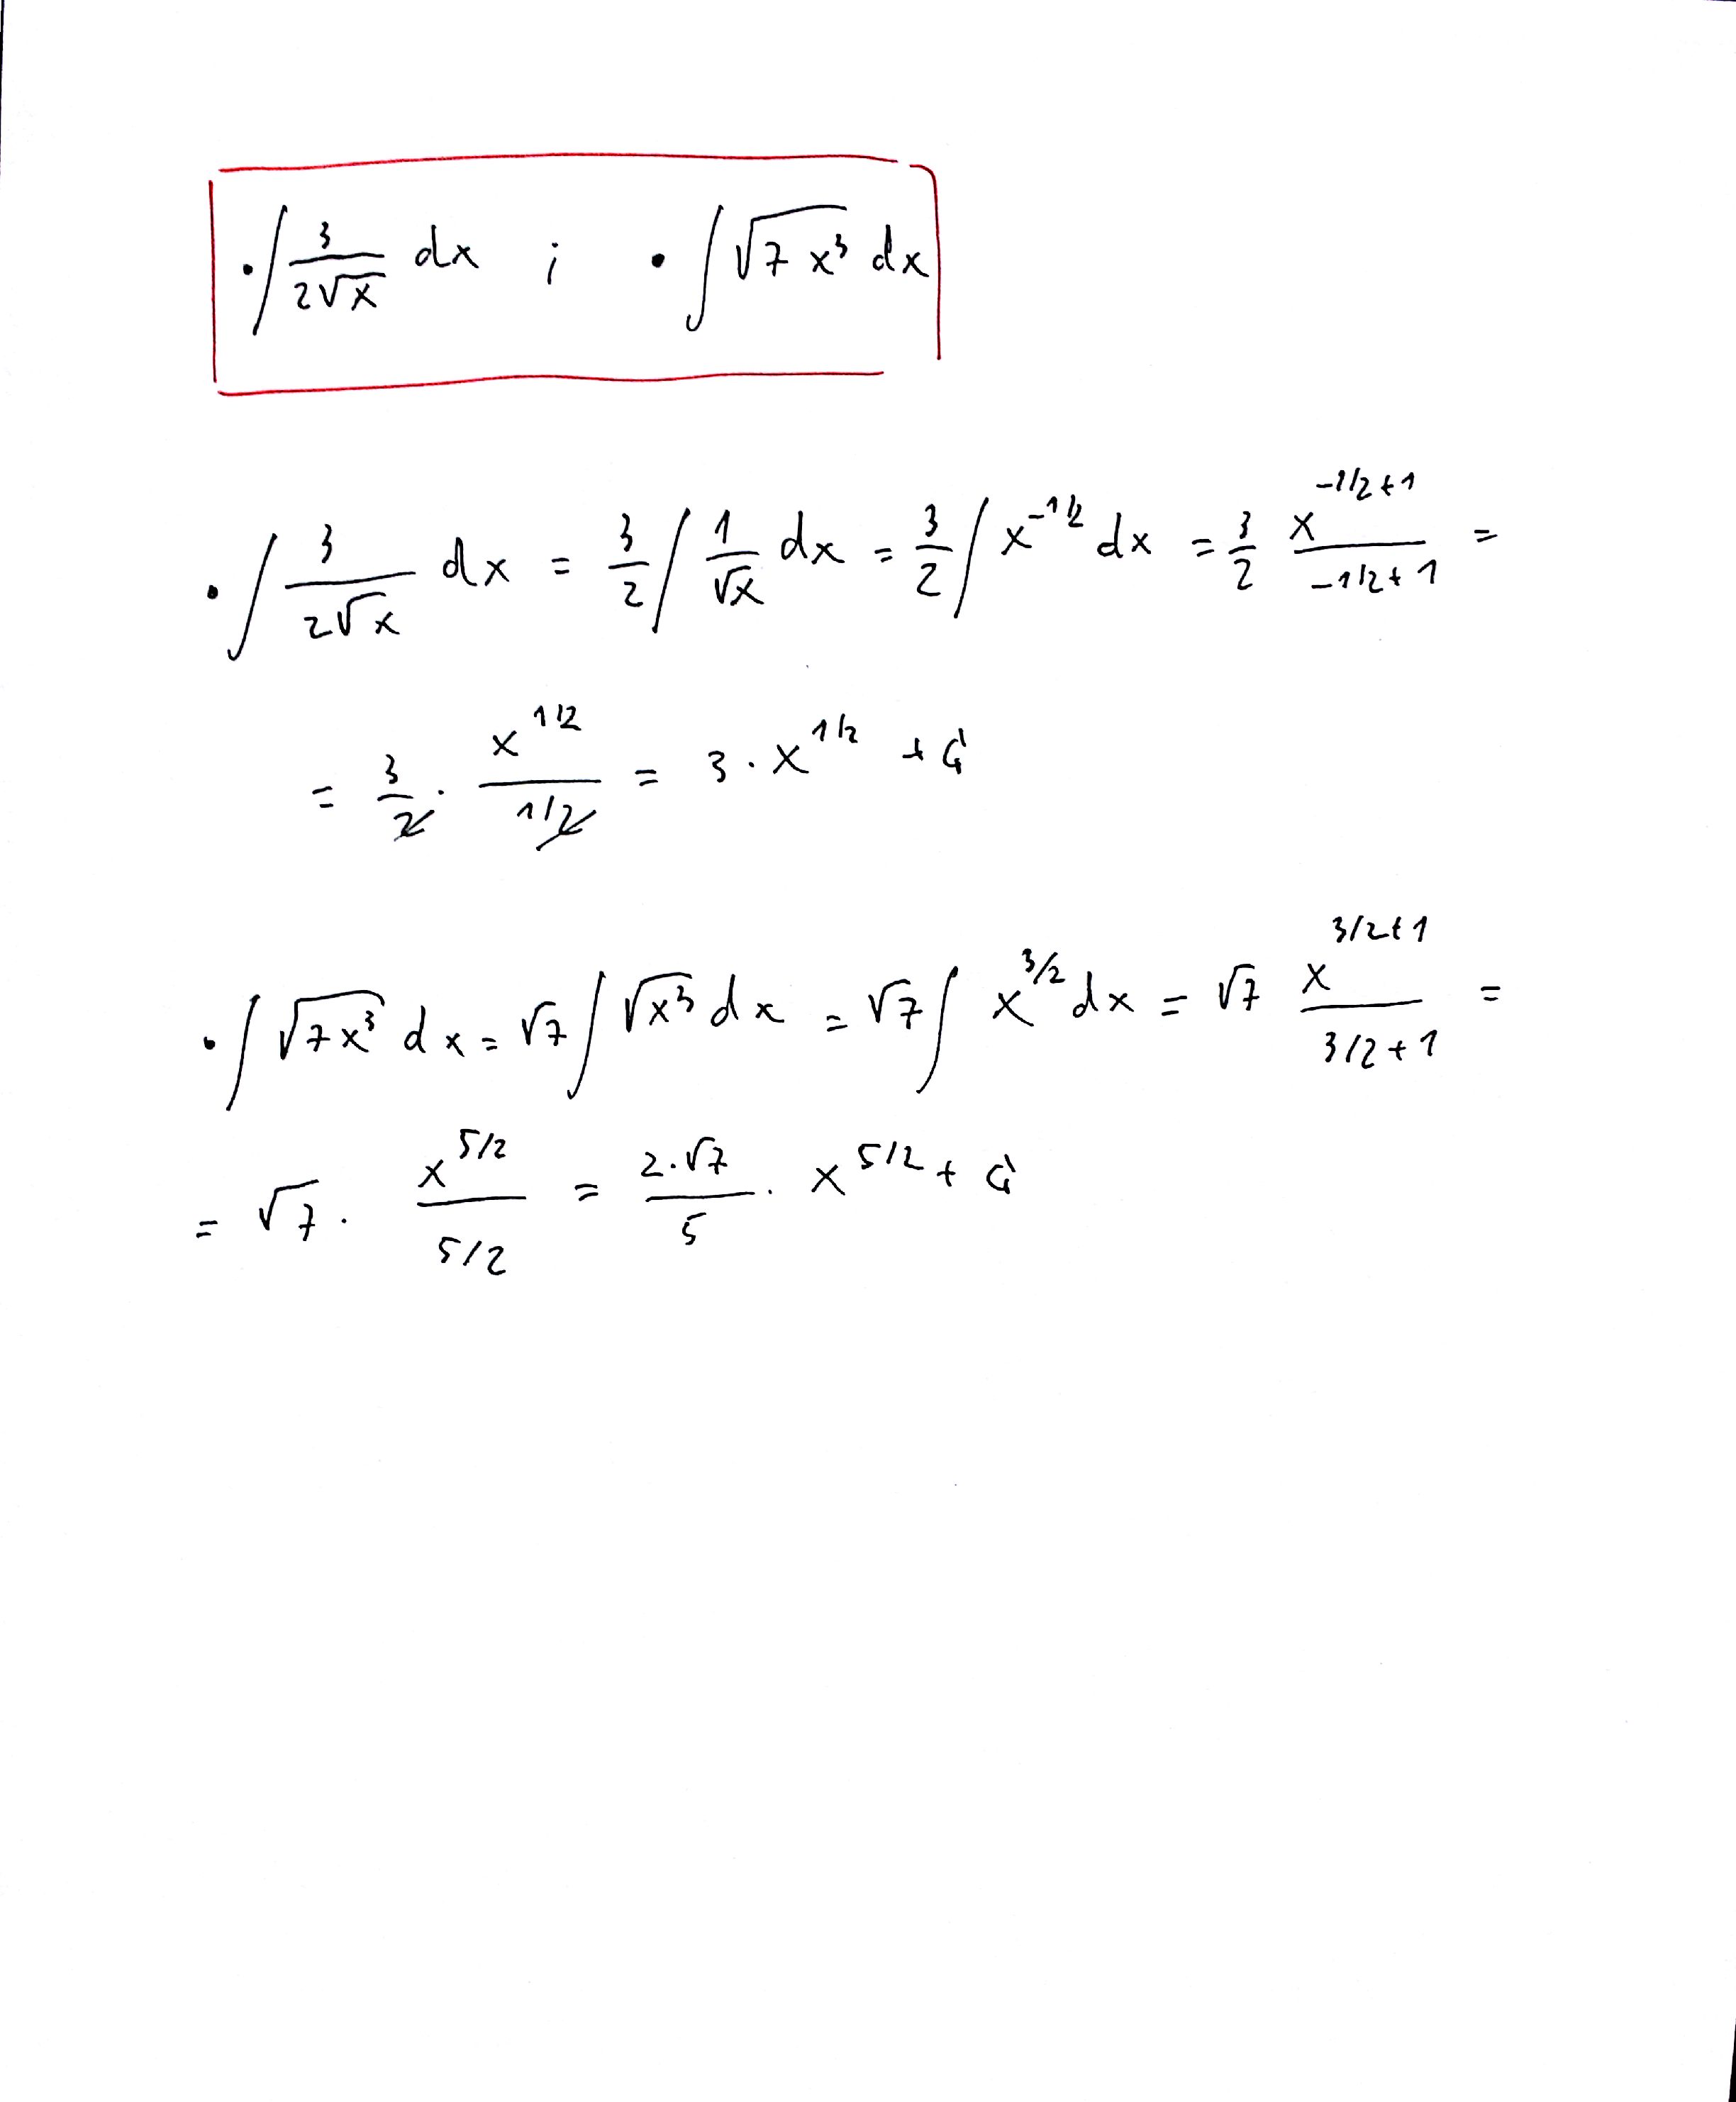 • ∫ 3/(2√x) dx ; • ∫ √(7x³) dx
• ∫ 3/(2√x) dx = 3/2 ∫ 1/√x dx = 3/2 ∫ x^(-1/2) dx = 3/2 x^(-1/2+1)/(-1/2+1) =
= 3/2 · x^(1/2)/(1/2) = 3 · x^(1/2) + C
• ∫ √(7x³) dx = √7 ∫ √(x³) dx = √7 ∫ x^(3/2) dx = √7 x^(3/2+1)/(3/2+1) =
= √7 · x^(5/2)/(5/2) = (2·√7)/5 · x^(5/2) + C